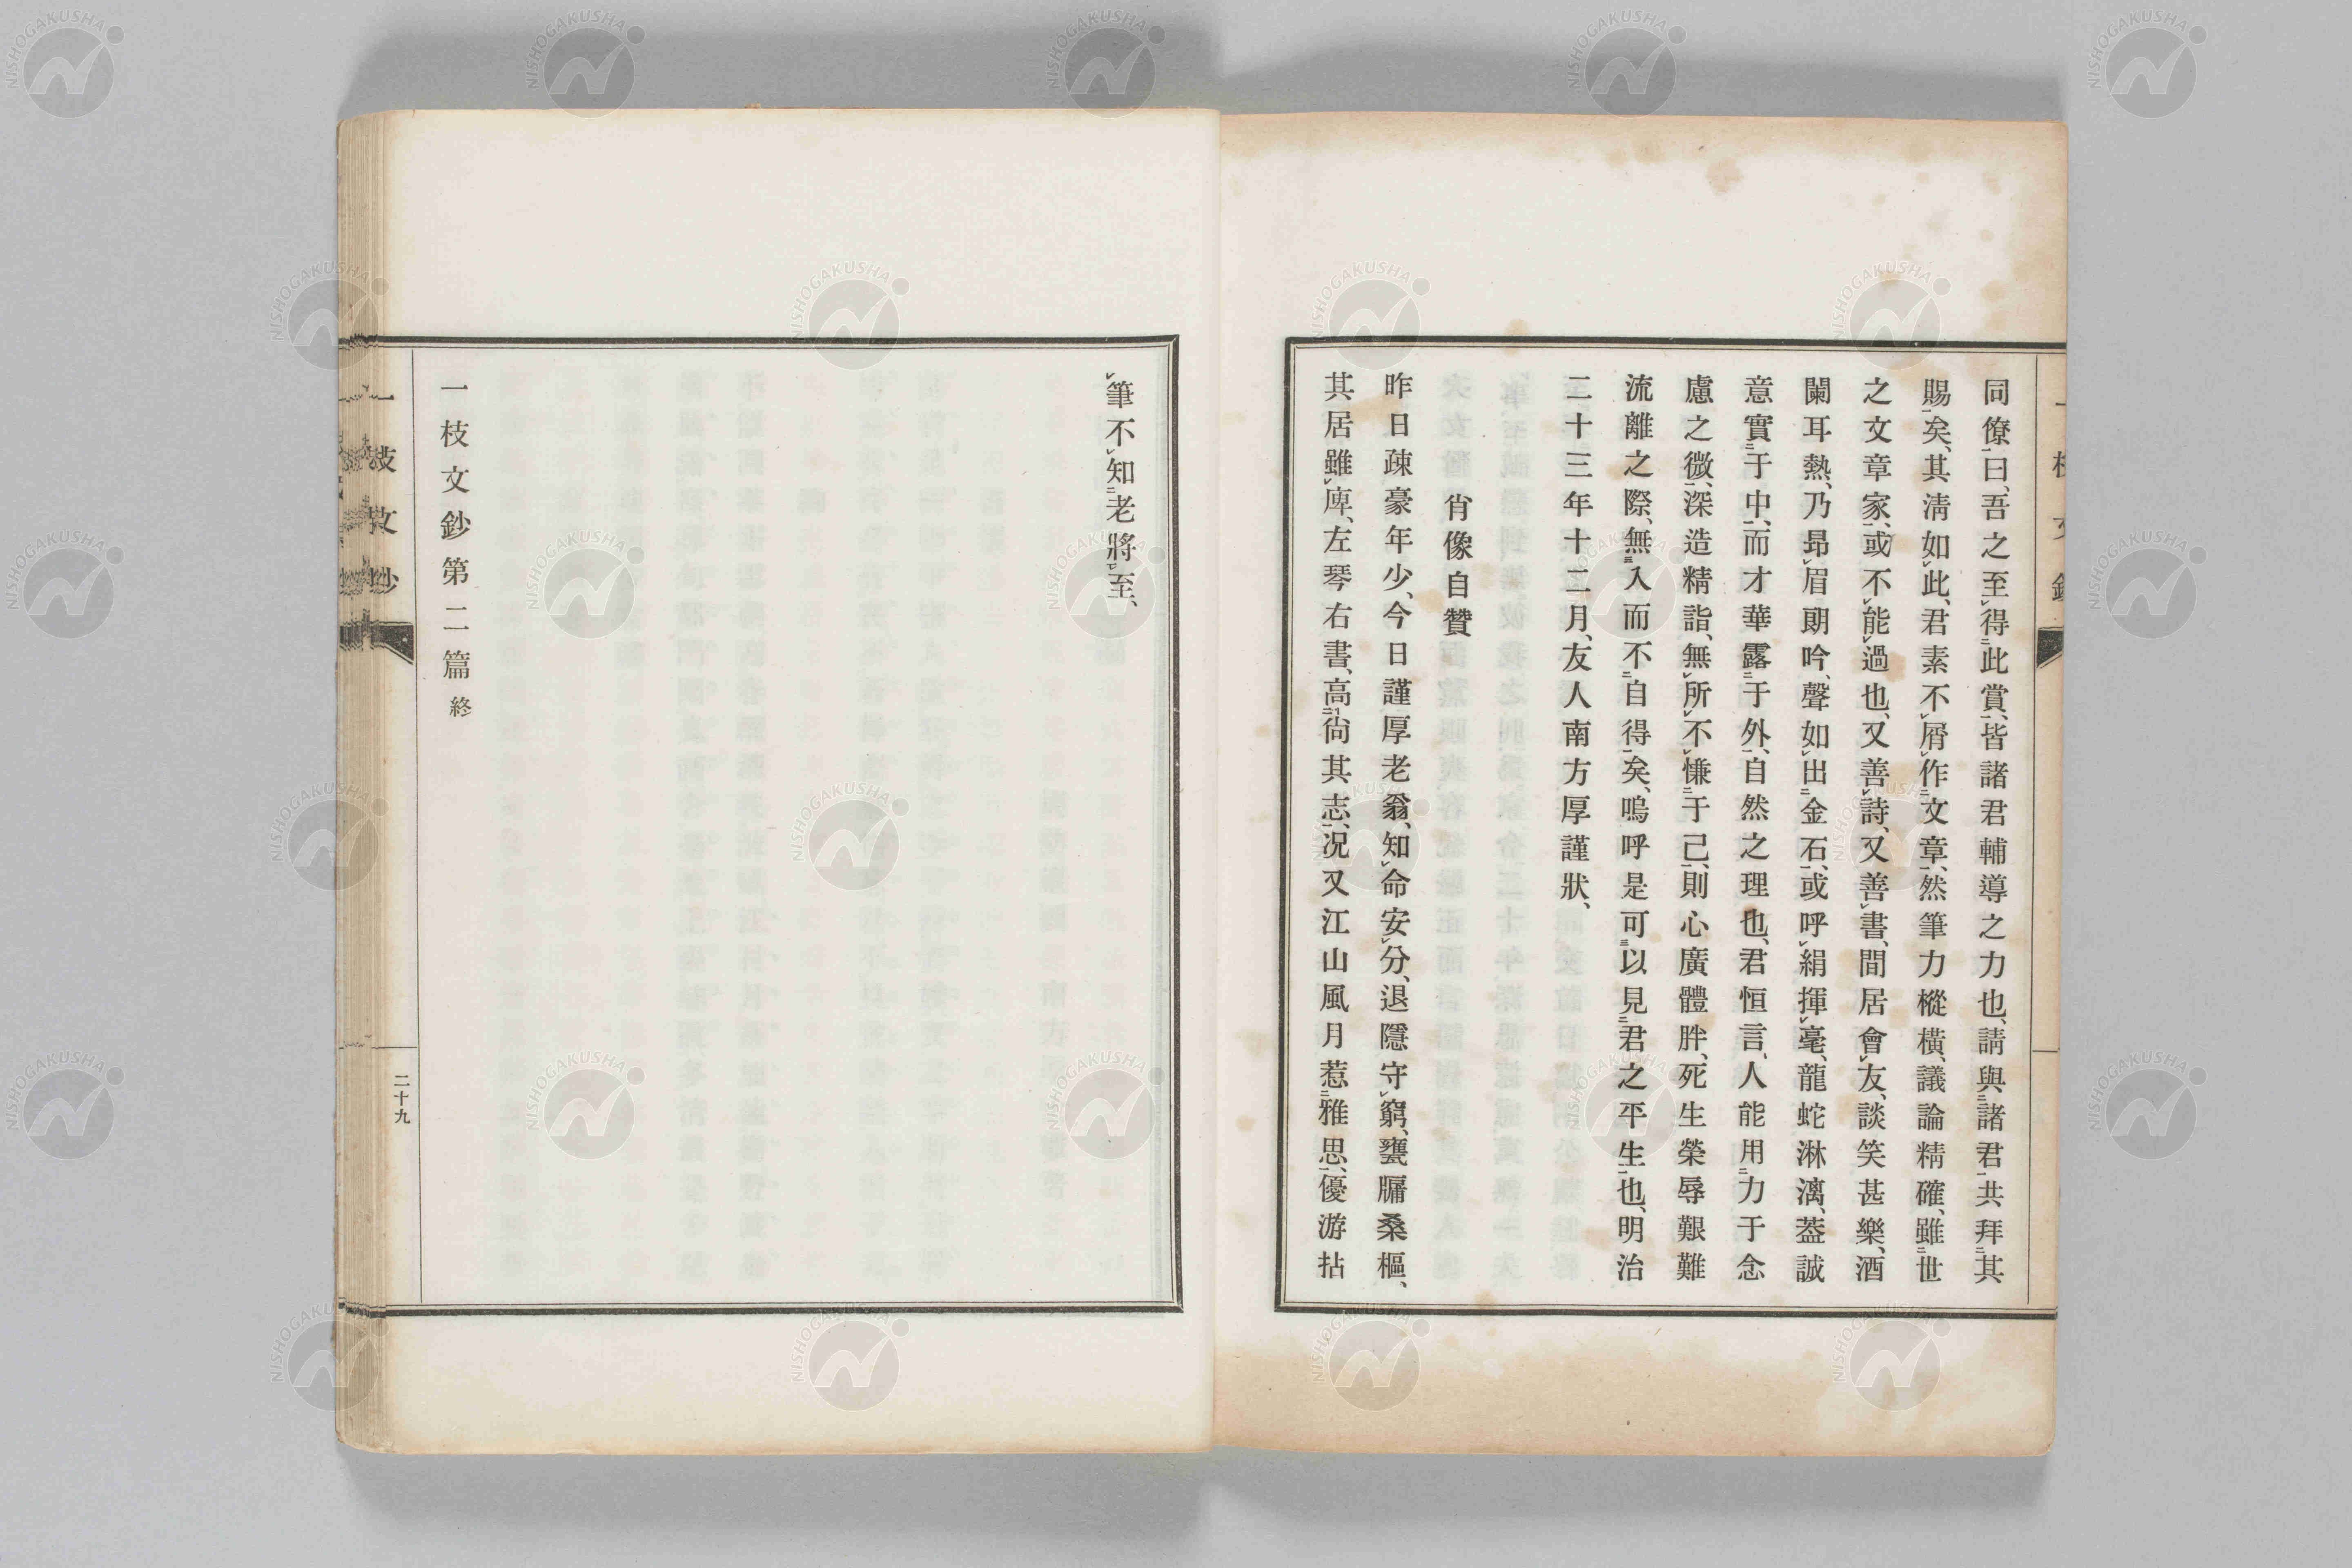 同僚曰、吾之至得此賞、皆諸君輔導之力也、請與諸君共拜其
賜矣、其淸如此、君素不屑作文章、然筆力樅橫、議論精確、雖世
之文章家、或不能過也、又善詩、又善書、間居會友、談笑甚樂、酒
闌耳熱、乃昻眉朗吟、聲如出金石、或呼絹揮毫、龍蛇淋漓、葢誠
意實于中、而才華露于外、自然之理也、君恒言、人能用力于念
慮之微、深造精詣、無所不慊于己、則心廣體胖、死生榮辱艱難
流離之際、無入而不自得矣、嗚呼是可以見君之平生也、明治
二十三年十二月、友人南方厚謹狀、
肖像自贊
昨日疎豪年少、今日謹厚老翁、知命安分、退隱守窮、甕牖桑樞、
其居雖庳、左琴右書、高尙其志、况又江山風月惹雅思、優游拈
筆不知老將至、
一枝文鈔第二篇終
一枝文鈔
二十九
NISHOGAKUSHA